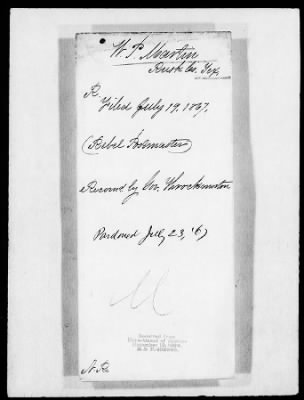 W. P. Martin
Rusk Co. Tex.
R.
Filed July 19, 1867,
(Rebel Postmaster)
Recom'd by Gov. Throckmorton
Pardoned July 23, '67
Received from
Department of Justice